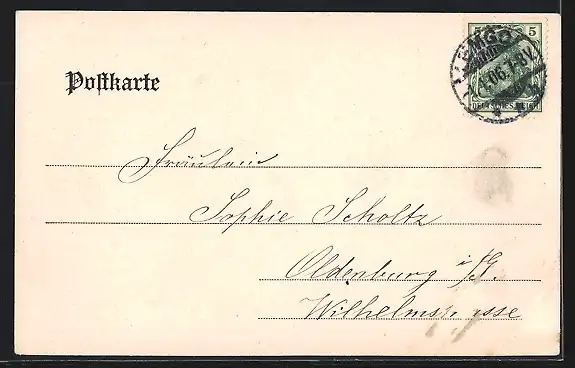 Postkarte
5
LEMGO
06.7-8V.
DEUTSCHES REICH
Fräulein
Sophie Scholtz
Oldenburg i/G.
Wilhelmstrasse